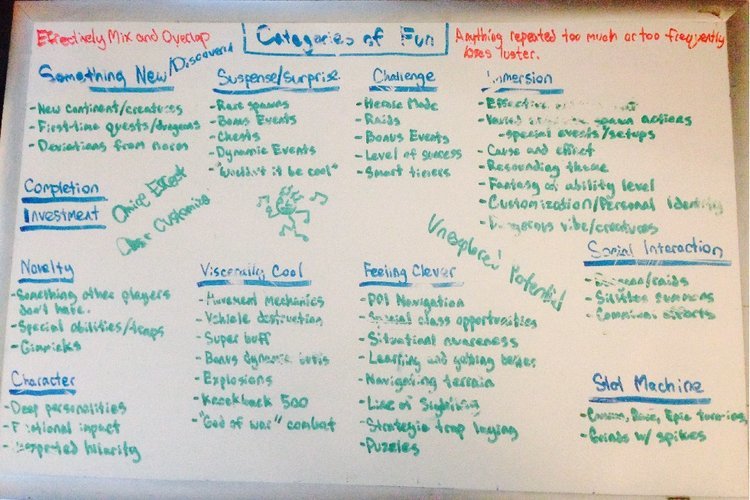 Effectively Mix and Overlap
Categories of Fun
Anything repeated too much or too frequently
loses luster.
Something New/Discovery
- New continent/creatures
- First-time quests/dungeons
- Deviations from norms
Suspense/Surprise
- Rare spawns
- Bonus Events
- Chests
- Dynamic Events
- "Wouldn't it be cool"
Challenge
- Heroic Mode
- Raids
- Bonus Events
- Level of success
- Smart timers
Immersion
- Effective
- Varied spawn actions
- special events/setups
- Cause and effect
- Resounding theme
- Fantasy of ability level
- Customization/Personal Identity
- Dangerous vibe/creatures
Completion
Investment
Choice Effect
Customize
Unexplored Potential
Social Interaction
- Dungeon/raids
- summons
- Communal efforts
Novelty
- Something other players
don't have.
- Special abilities/traps
- Gimmicks
Viscerally Cool
- Movement Mechanics
- Vehicle destruction
- Super buff
- Bonus dynamic
- Explosions
- Knockback 500
- "God of war" combat
Feeling Clever
- POI Navigation
- Special class opportunities
- Situational awareness
- Learning and getting better
- Navigating terrain
- Line of Sighting
- Strategic trap laying
- Puzzles
Character
- Deep personalities
- Emotional impact
- Unexpected hilarity
Slot Machine
- Common, Rare, Epic
- Grinds w/ spikes